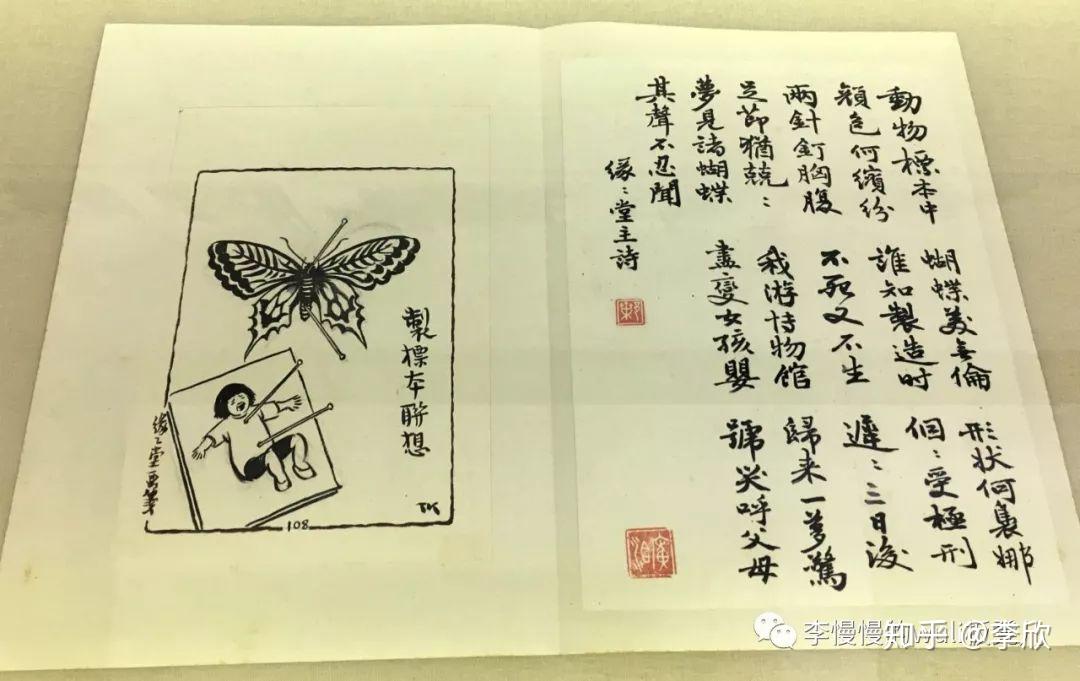 動物標本中 蝴蝶美無倫 形状何裊娜
顏色何繽紛 誰知製造时 個〻受極刑
兩針釘胸腹 不死又不生 遲〻三日後
足節猶兢〻 我游博物館 歸来一夢驚
夢見諸蝴蝶 盡變女孩嬰 號哭呼父母
其聲不忍聞
缘〻堂主詩
廣洽
製標本聯想
TK
缘〻堂画箋
108
李慢慢的
知乎 @李欣